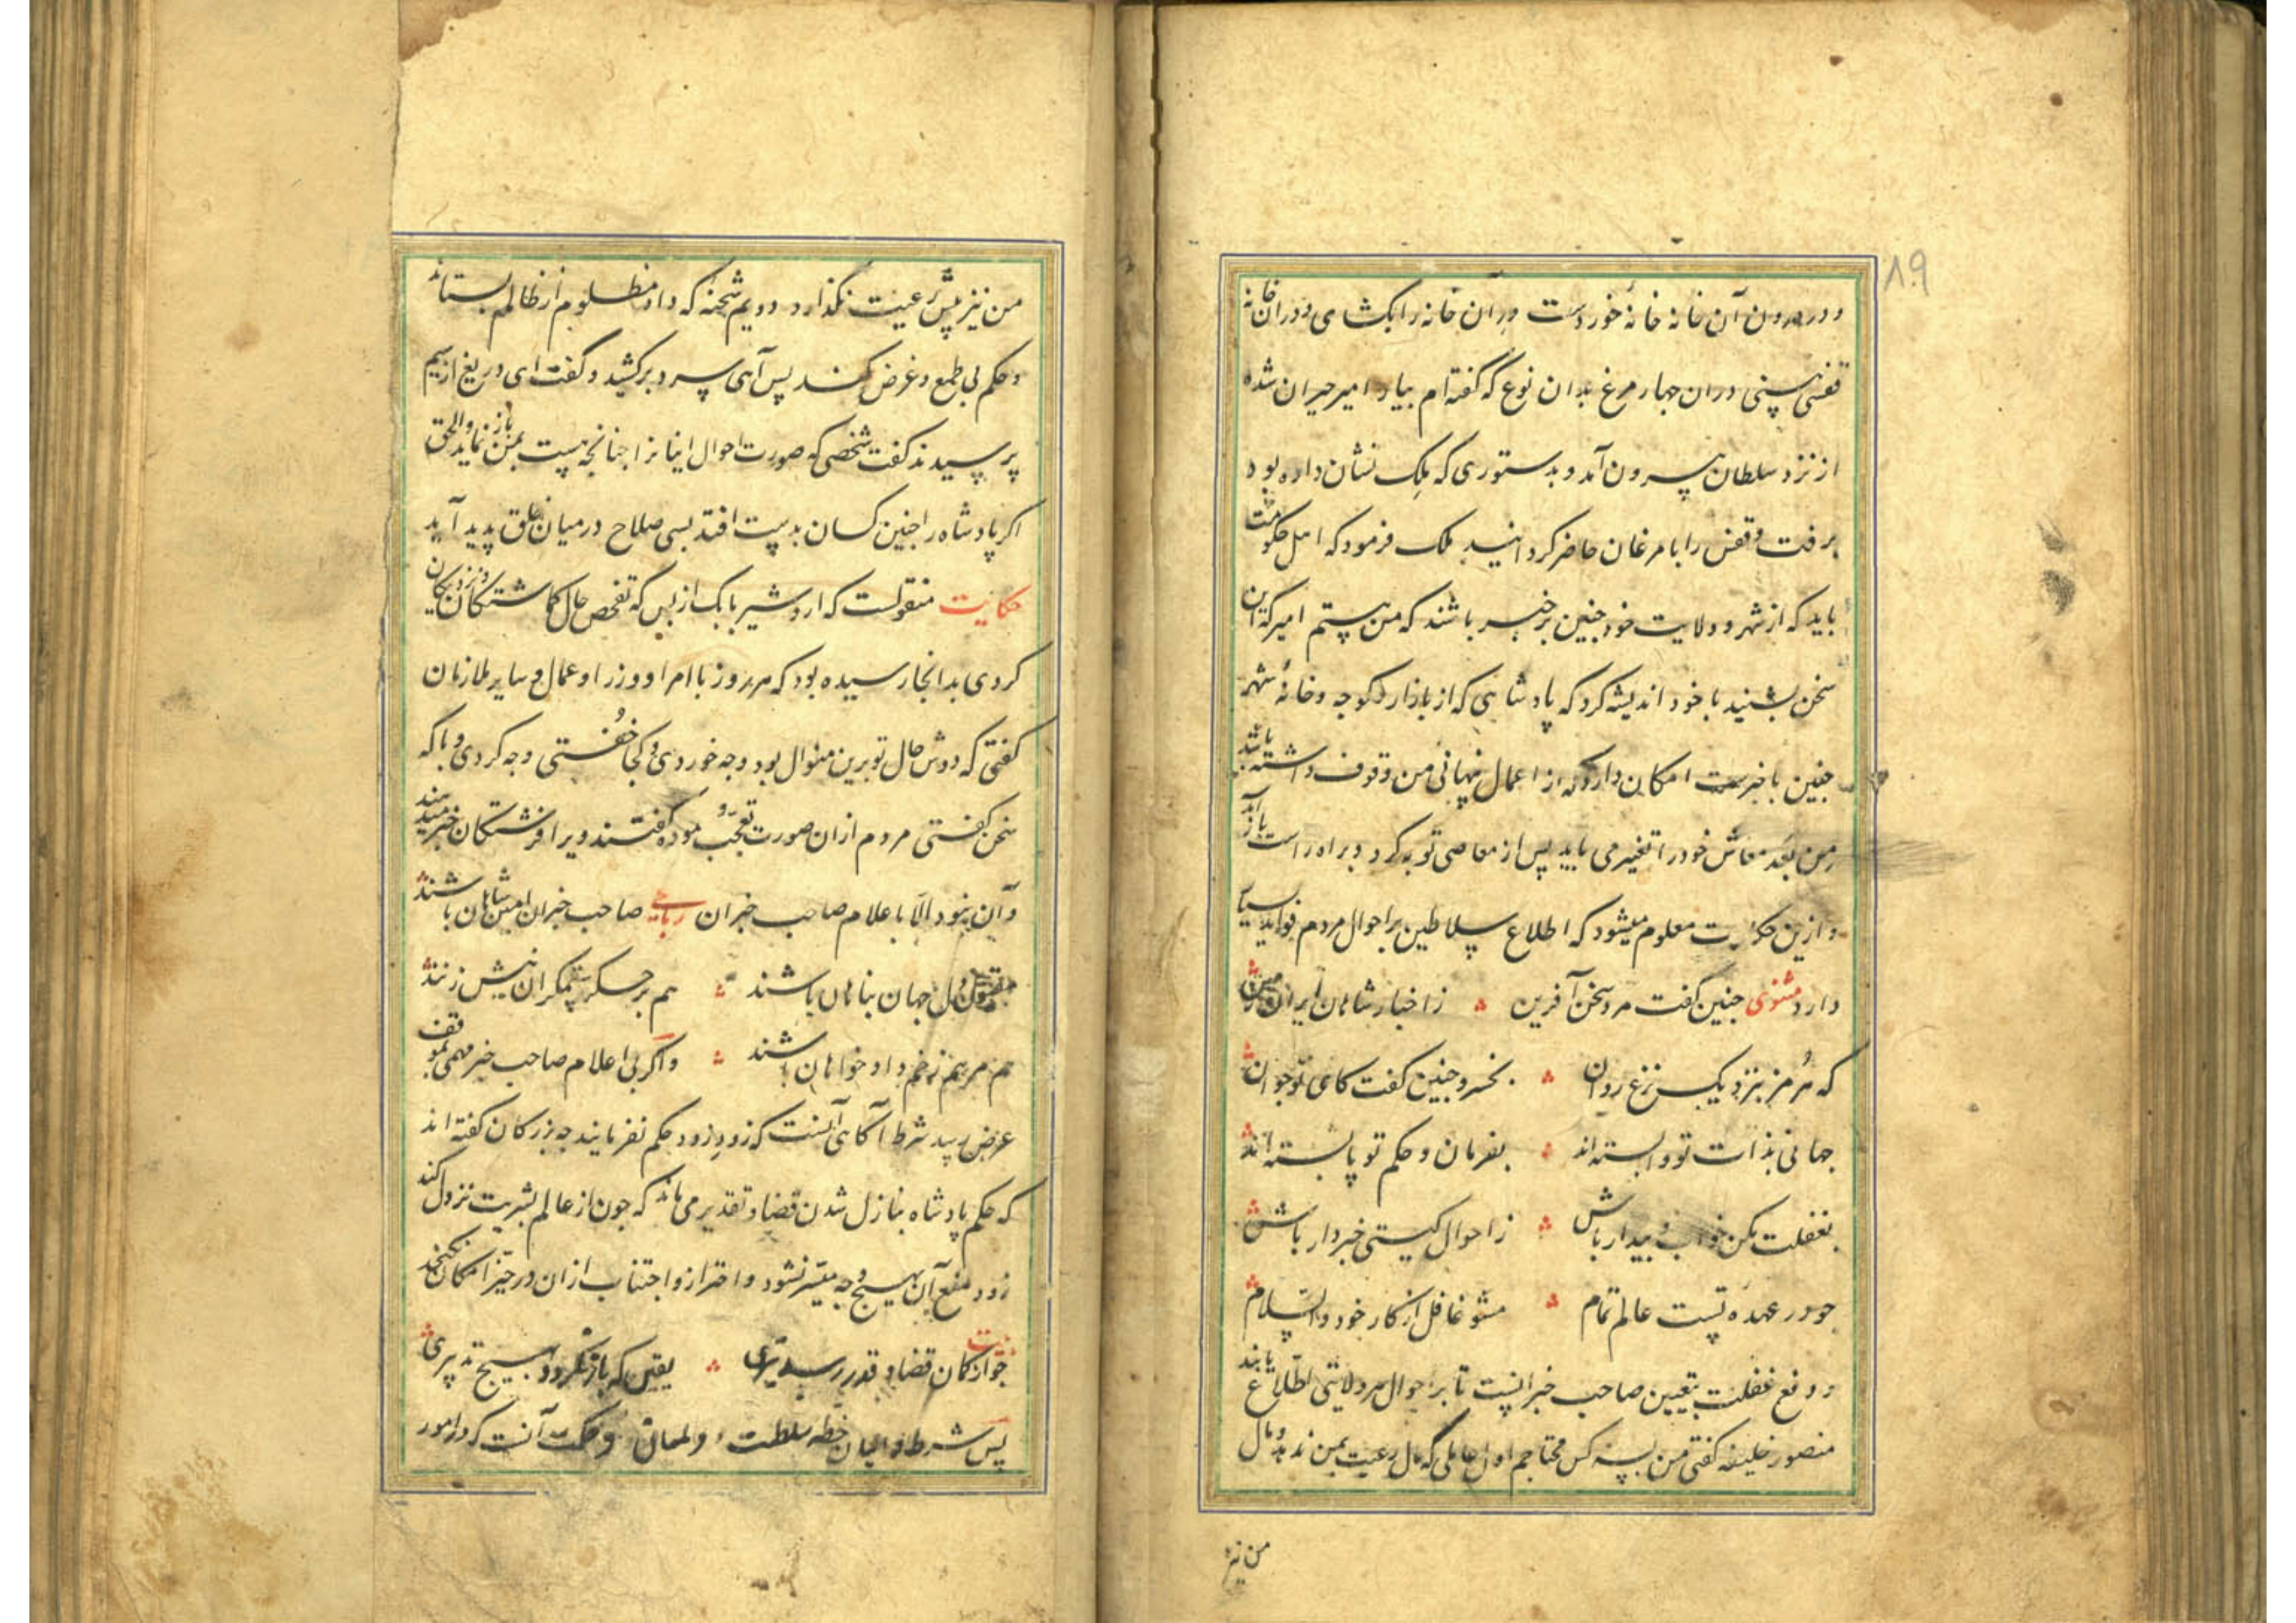 ۸۹
و در درون آن خانه خانهٔ خوردست در آن خانه را بکشای و در ان خانه
قفسی بینی در ان چهار مرغ بدان نوع که گفته‌ام بیار امیر حیران شده
از نزد سلطان بیرون آمد و بدستوری که ملک نشان داده بود
برفت و قفس را با مرغان حاضر کردانید ملک فرمود که اهل حکومت
باید که از شهر و ولایت خود چنین برخبر باشند که من هستم امیر که این
سخن بشنید با خود اندیشه کرد که پادشاهی که از بازار و کوچه و خانهٔ شهر
چنین با خبرست امکان دارد که از اعمال نهانی من وقوف داشته باشد
من بعد معاش خود را تغییر می باید پس از معاصی توبه کرد و براه راست باز آمد
و ازین حکایت معلوم میشود که اطلاع سلاطین بر احوال مردم فواید بسیار
دارد مثنوی چنین گفت مرد سخن آفرین ز اخبار شاهان ایران زمین
که هرمز بنزدیک نزع روان بخسرو چنین گفت کای نوجوان
جهانی بذات تو وابسته‌اند بفرمان و حکم تو پابسته‌اند
بغفلت مکن خواب و بیدار باش ز احوال گیتی خبردار باش
چو در عهدهٔ تست عالم تمام مشو غافل از کار خود والسلام
و دفع غفلت بتعیین صاحب خبرانست تا بر احوال هر ولایتی اطلاع یابند
منصور خلیفه گفتی من بسه کس محتاجم اول عاملی که مال رعیت بمن ندهد و مال
من نیز
من نیز پیش رعیت نگذارد دویم شحنهٔ که داد مظلوم از ظالم بستاند
و حکم بی طمع و غرض کند پس آهی سرد برکشید و گفت ای دریغ از سیم
پرسیدند گفت شخصی که صورت احوال اینانرا چنانچه هست بمن باز نماید و الحق
اگر پادشاه را چنین کسان بدست افتد بسی صلاح در میان خلق پدید آید
حکایت منقولست که اردشیر بابک از بس که تفحص حال گماشتگان و نزدیکان
کردی بدانجا رسیده بود که هر روز با امرا و وزرا و عمال و سایر ملازمان
گفتی که دوش حال تو برین منوال بود و چه خوردی و کجا خفتی و چه کردی و با که
سخن گفتی مردم از ان صورت تعجب نموده گفتند ویرا فرشتگان خبر میدهند
و آن نبود الا باعلام صاحب خبران رباعی صاحب خبران امین شاهان باشند
مقبول دل جهان پناهان باشند هم بر جگر ستمگران نیش زنند
هم مرهم زخم داد خواهان باشند و اگر بی اعلام صاحب خبر مهمی بموقف
عرض رسید شرط آگاهی آنست که زود زود حکم نفرمایند چه بزرگان گفته‌اند
که حکم پادشاه بنازل شدن قضا و تقدیر می ماند که چون از عالم بشریت نزول کند
زود دفع آن بهیچ وجه میسر نشود و احتراز و اجتناب از ان در حیز امکان نگنجد
بیت
چو از کمان قضا و قدر رسد تیری یقین که باز نگردد بهیچ تدبیری
پس شرط والیان خطه سلطنت و حکومت آنست که در امور